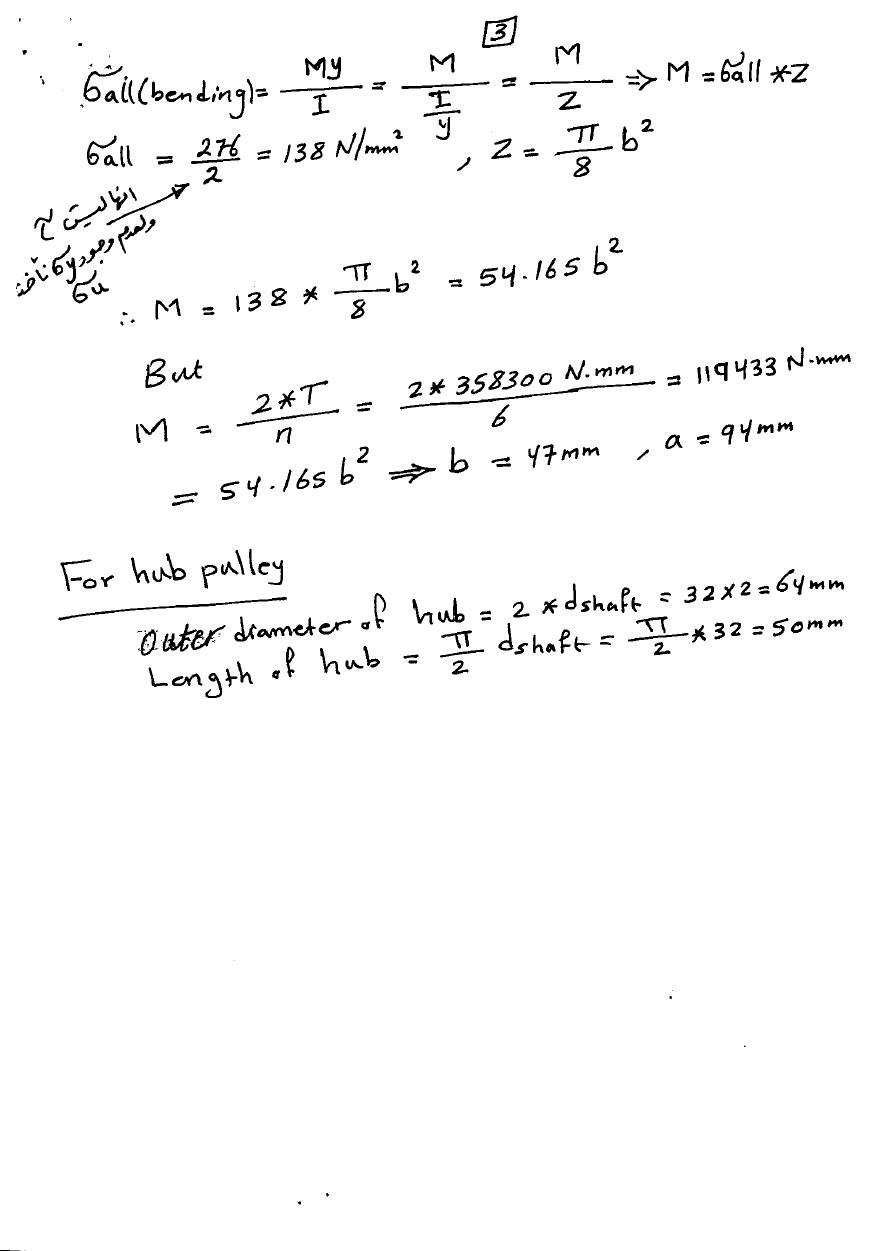 3
σall(bending)= My/I = M/(I/y) = M/Z ⇒ M = σall *Z
σall = 276/2 = 138 N/mm² , Z = π/8 b²
ولعدم وجود σy نأخذ
σu
∴ M = 138 * π/8 b² = 54.165 b²
But
M = 2*T/n = 2* 358300 N.mm/6 = 119433 N.mm
= 54.165 b² ⇒ b = 47mm , a = 94mm
For hub pulley
Outer diameter of hub = 2 * dshaft = 32x2=64mm
Length of hub = π/2 dshaft = π/2 *32 = 50mm